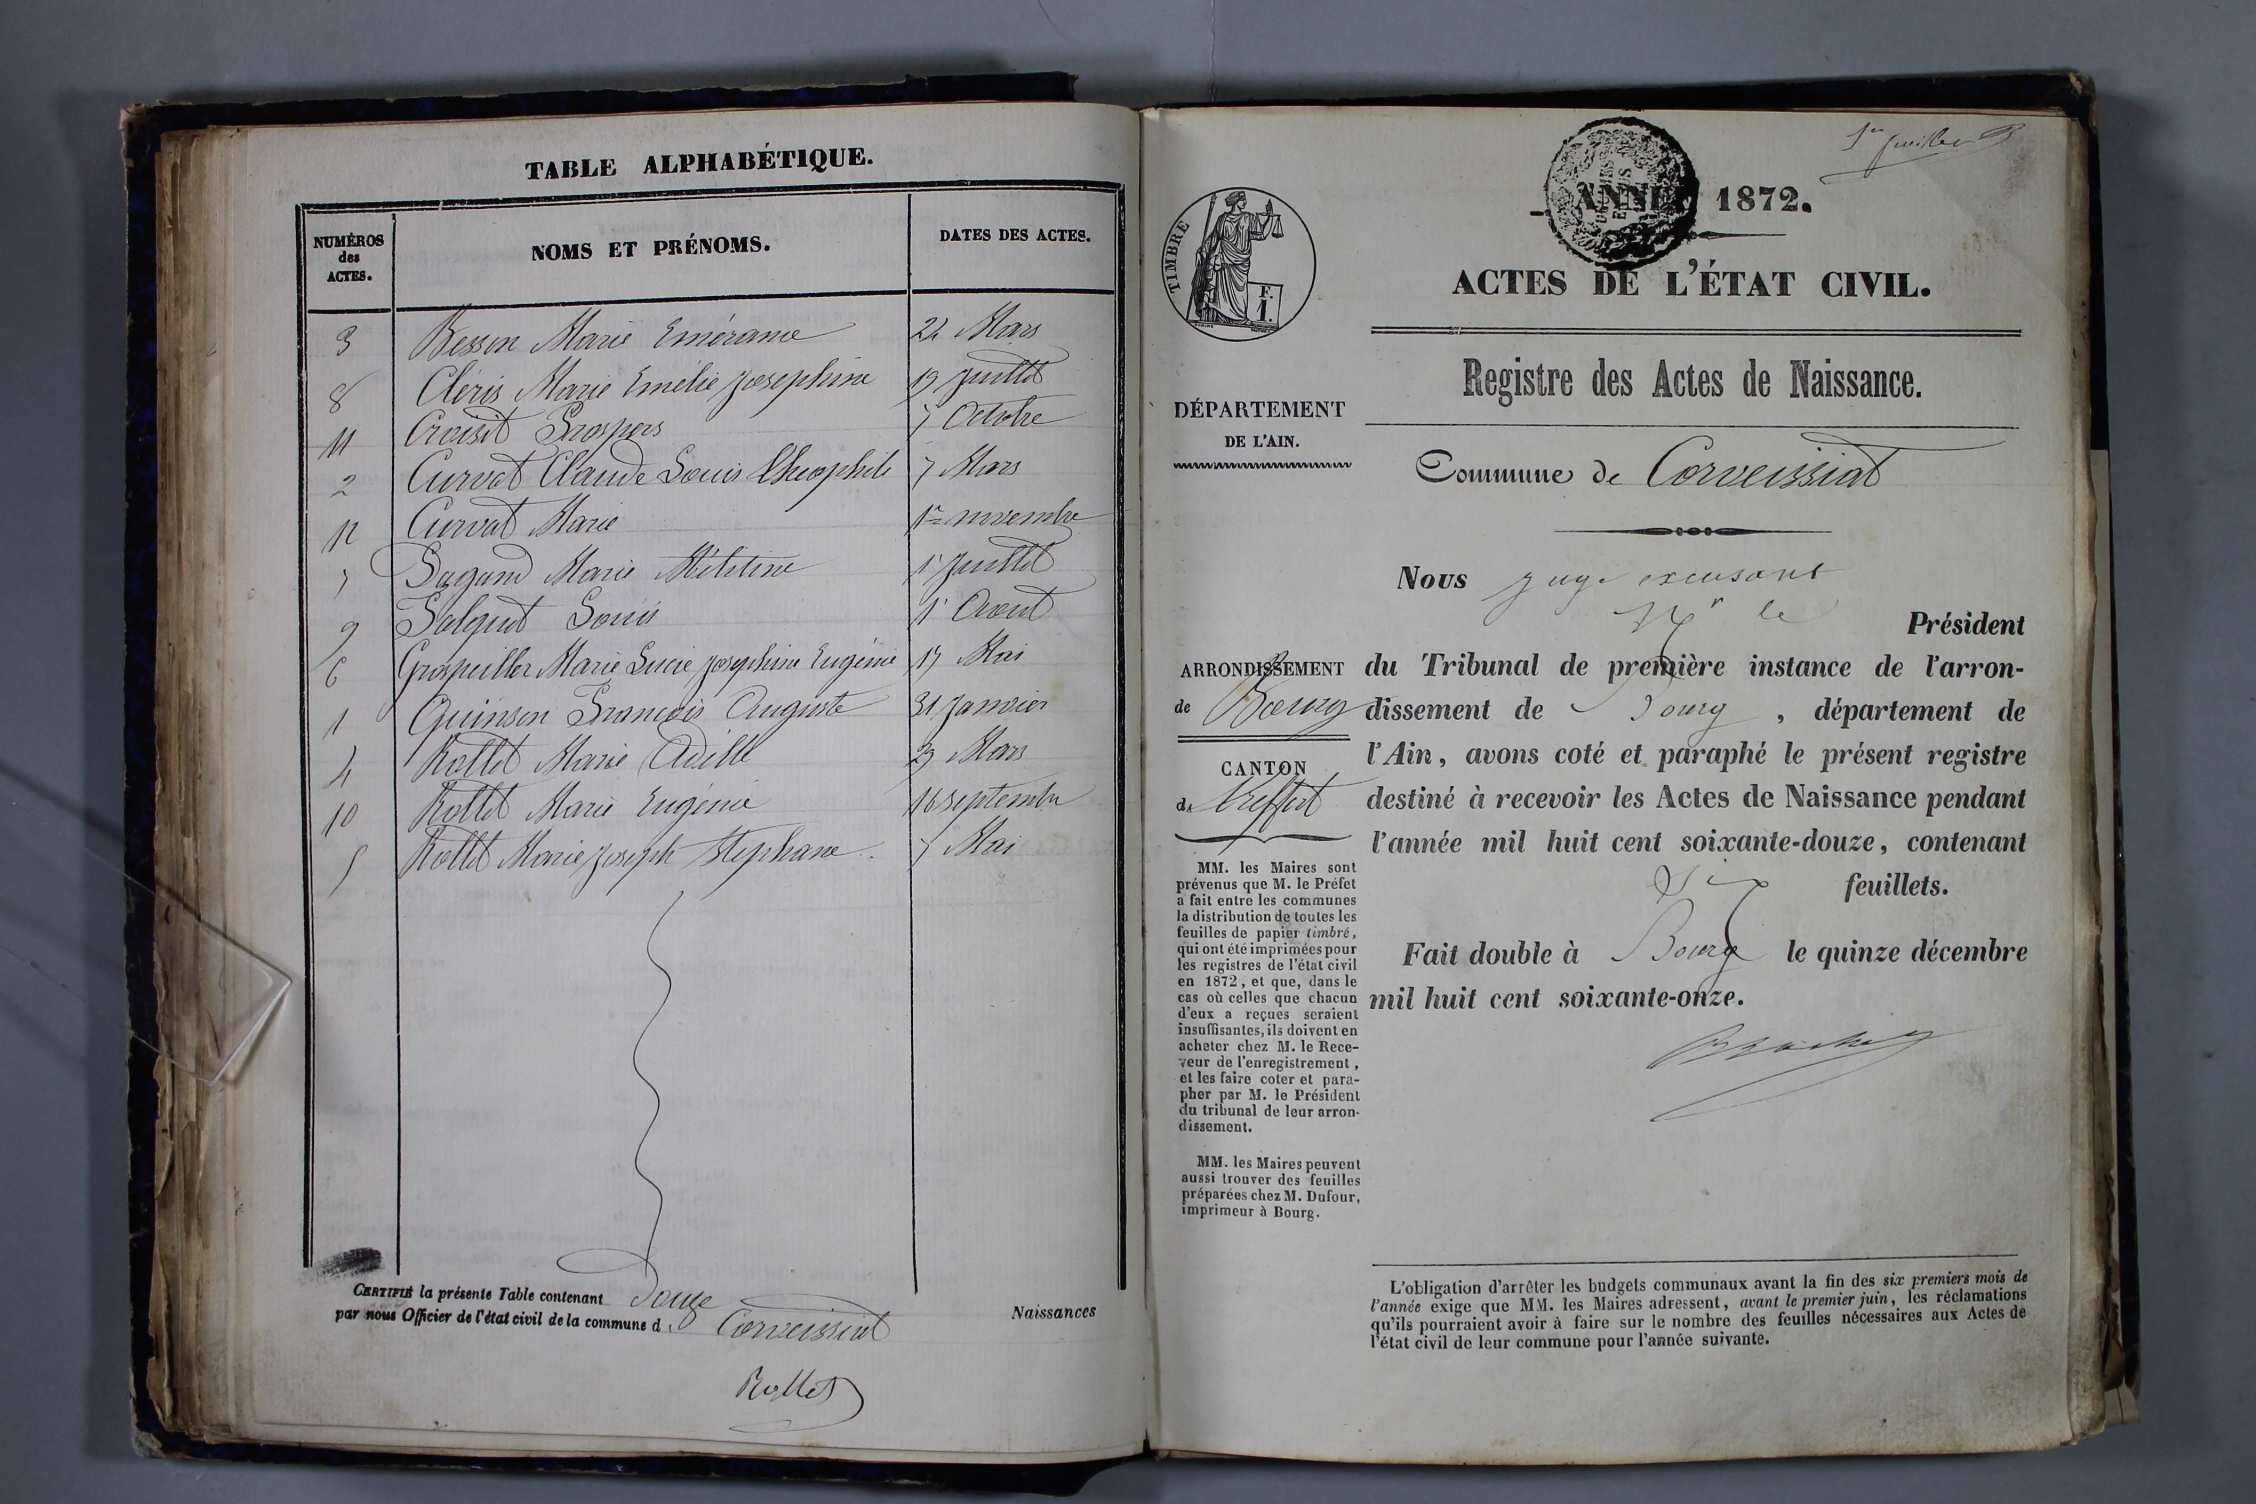 TABLE ALPHABÉTIQUE.
NUMÉROS
des
ACTES.
NOMS ET PRÉNOMS.
DATES DES ACTES.
3 Besson Marie Emérance 24 Mars
8 Cléris Marie Emélie Josephine 19 Juillet
11 Croisit Prospers 7 Octobre
2 Curvat Claude Louis Théophile 7 Mars
12 Curvat Marie 1er novembre
7 Dagand Marie Mélitine 1er Juillet
9 Falquet Louis 1er Aout
6 Grospellier Marie Lucie Josephine Eugénie 17 Mai
1 Guinson François Auguste 31 Janvier
4 Rollet Marie Adelle 29 Mars
10 Rollet Marie Eugénie 16 septembre
5 Rollet Marie Joseph Stephane 7 Mai
CERTIFIÉ la présente Table contenant Douze Naissances
par nous Officier de l'état civil de la commune d Corveissiat
Rollet
1er feuillet
ANNÉE 1872.
TIMBRE
F.
1.
ACTES DE L'ÉTAT CIVIL.
Registre des Actes de Naissance.
DÉPARTEMENT
DE L'AIN.
Commune de Corveissiat
Nous juge excusant
Mr le
Président
du Tribunal de première instance de l'arron-
dissement de Bourg, département de
l'Ain, avons coté et paraphé le présent registre
destiné à recevoir les Actes de Naissance pendant
l'année mil huit cent soixante-douze, contenant
Six feuillets.
Fait double à Bourg le quinze décembre
mil huit cent soixante-onze.
ARRONDISSEMENT
de Bourg
CANTON
de Treffort
MM. les Maires sont
prévenus que M. le Préfet
a fait entre les communes
la distribution de toutes les
feuilles de papier timbré,
qui ont été imprimées pour
les registres de l'état civil
en 1872, et que, dans le
cas où celles que chacun
d'eux a reçues seraient
insuffisantes, ils doivent en
acheter chez M. le Rece-
veur de l'enregistrement,
et les faire coter et para-
pher par M. le Président
du tribunal de leur arron-
dissement.
MM. les Maires peuvent
aussi trouver des feuilles
préparées chez M. Dufour,
imprimeur à Bourg.
L'obligation d'arrêter les budgets communaux avant la fin des six premiers mois de
l'année exige que MM. les Maires adressent, avant le premier juin, les réclamations
qu'ils pourraient avoir à faire sur le nombre des feuilles nécessaires aux Actes de
l'état civil de leur commune pour l'année suivante.